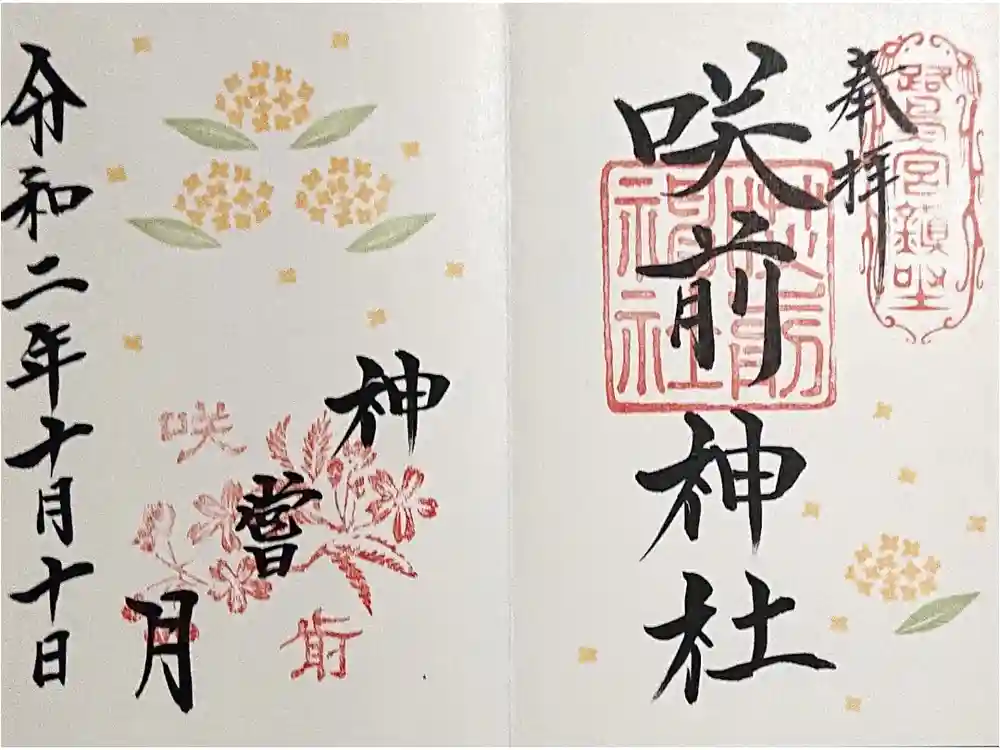 鷺宮鎮坐
奉拝
咲前神社
咲前
神社
神嘗月
咲前
令和二年十月十日